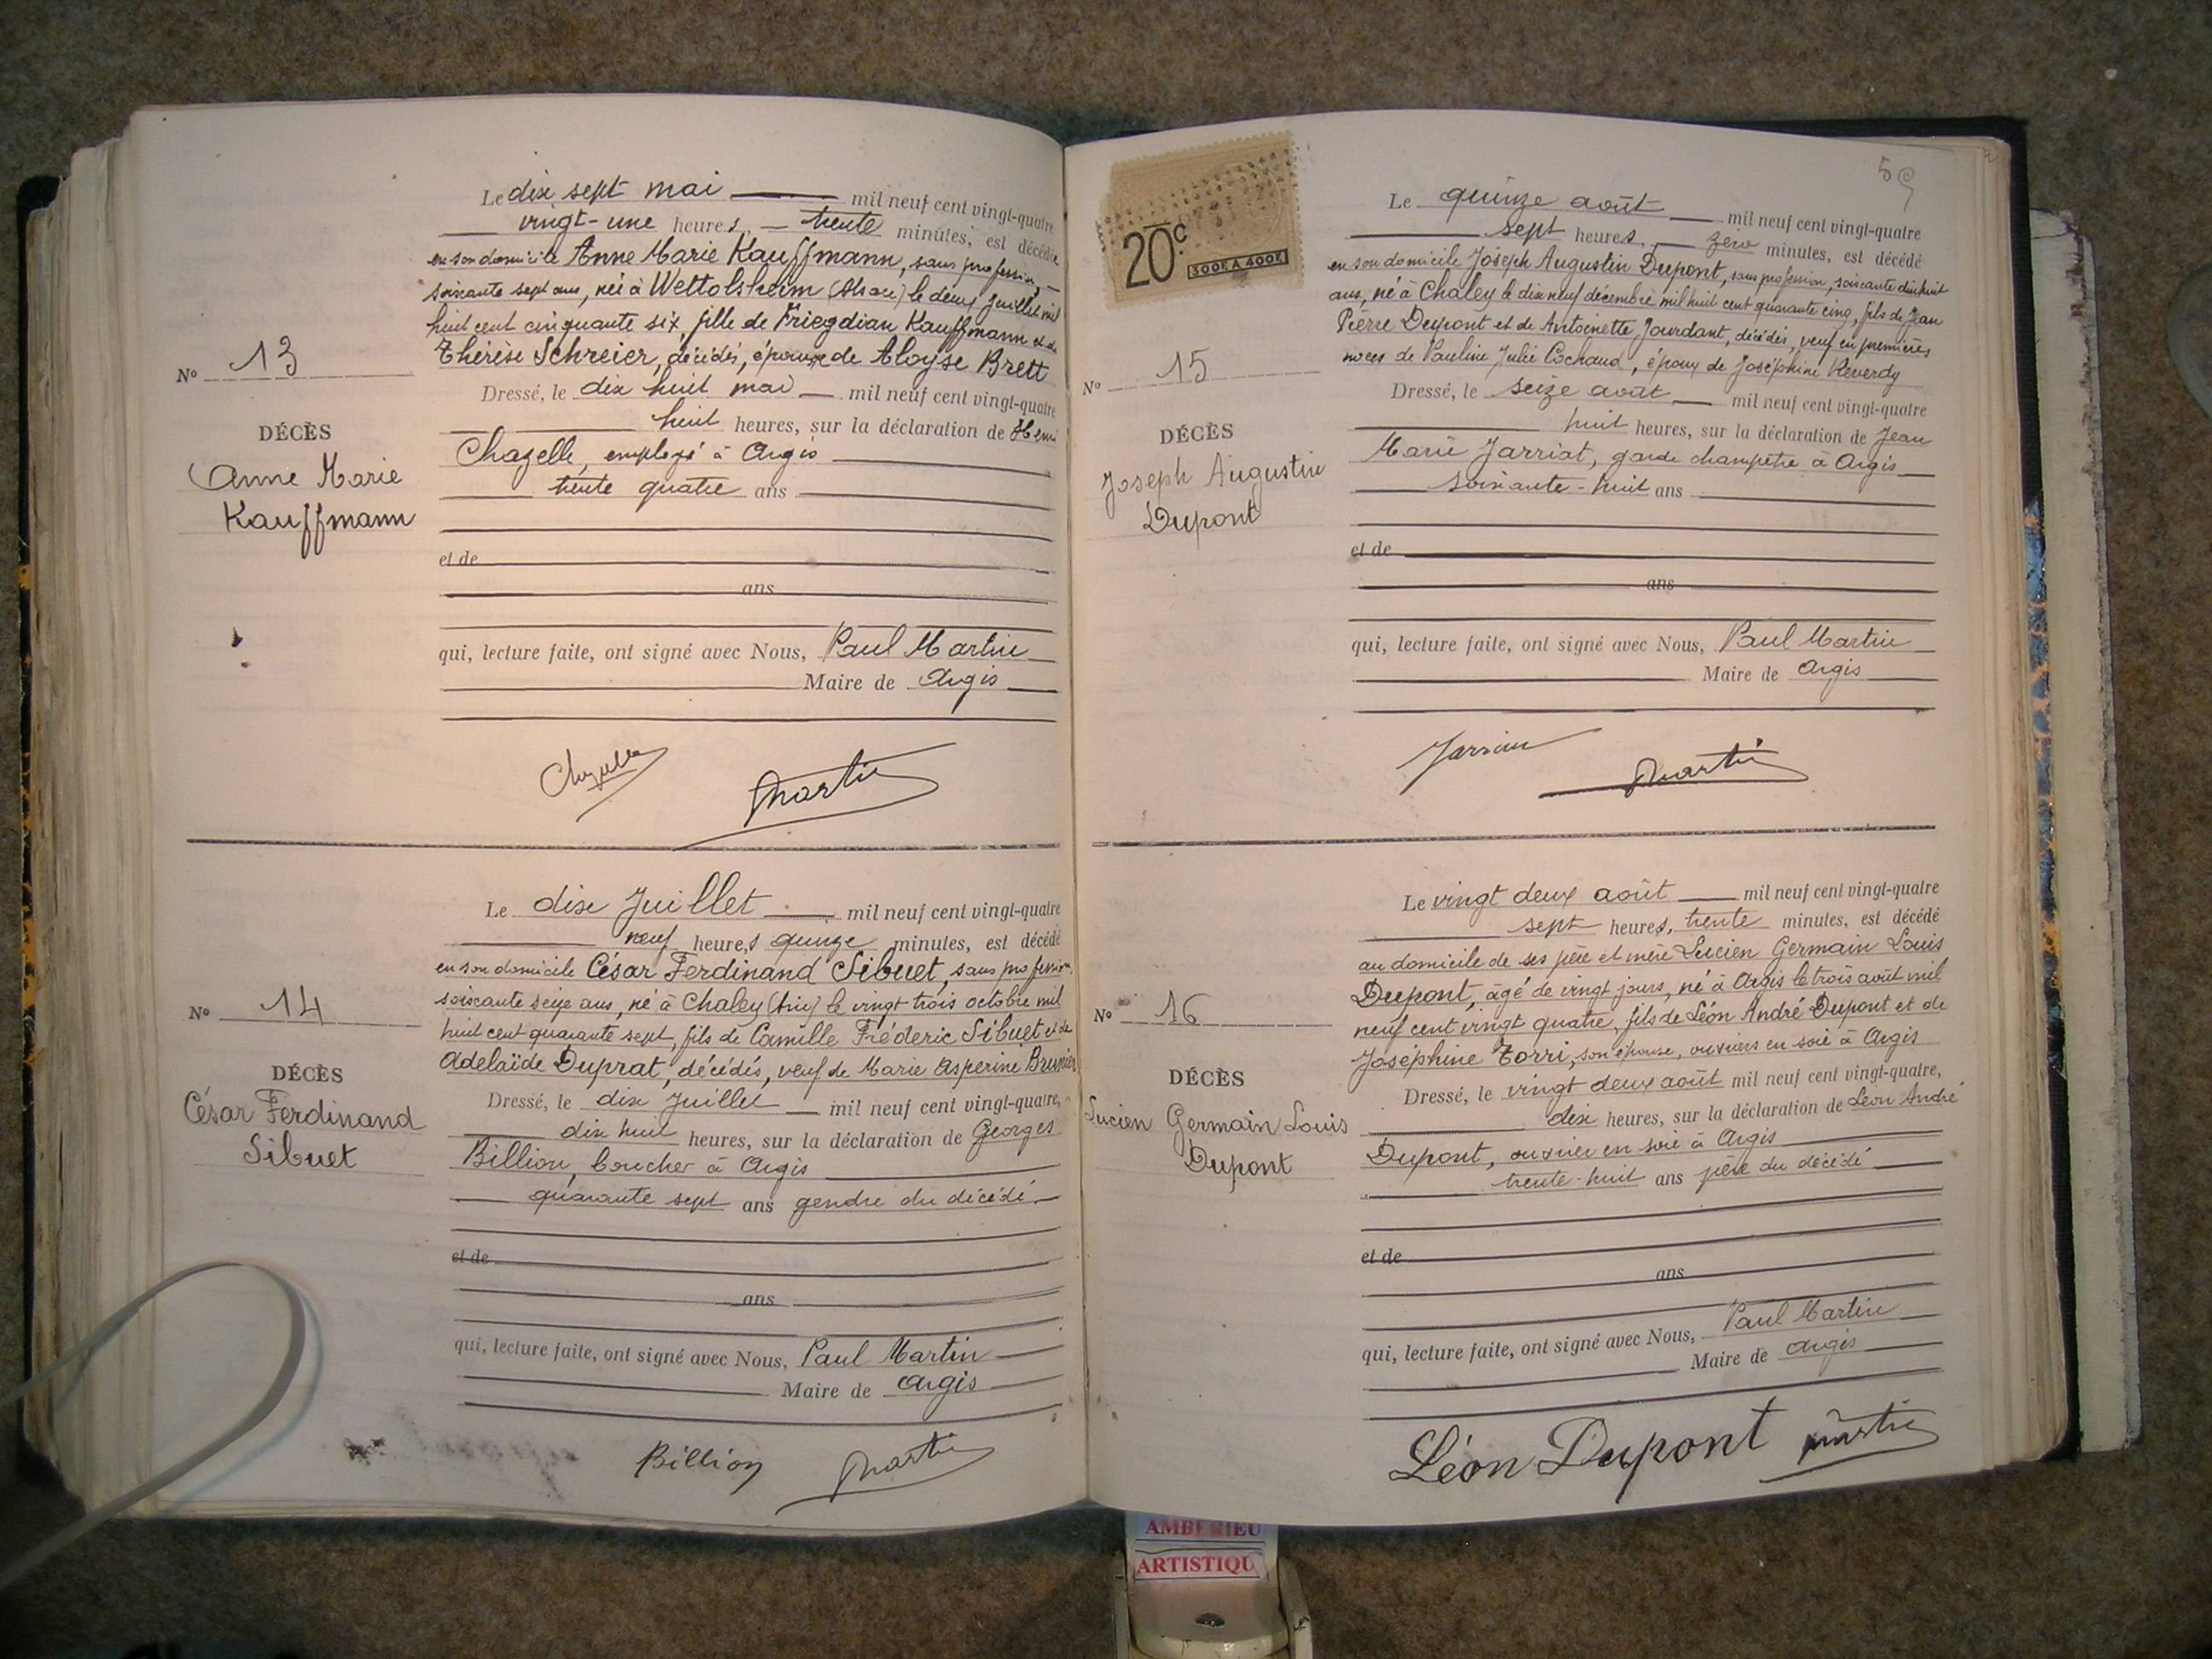 Le dix sept mai mil neuf cent vingt-quatre
vingt-une heures, trente minutes, est décédée
en son domicile Anne Marie Kauffmann, sans profession,
soixante sept ans, née à Wettolsheim (Alsace) le deux Juillet mil
huit cent cinquante six, fille de Kauffmann et de
Thérèse Schreier, décédés, épouse de Aloÿse Brett
Nº 13
Dressé, le dix huit mai mil neuf cent vingt-quatre
huit heures, sur la déclaration de Henri
DÉCÈS
Anne Marie
Kauffmann
Chazelle, employé à Argis
trente quatre ans
et de
ans
qui, lecture faite, ont signé avec Nous, Paul Martin
Maire de Argis
Chazelle
Martin
Le dix Juillet mil neuf cent vingt-quatre
neuf heures quinze minutes, est décédé
en son domicile César Ferdinand Sibuet, sans profession,
soixante seize ans, né à Chaley (Ain) le vingt trois octobre mil
huit cent quarante sept, fils de Camille Fréderic Sibuet et de
Adelaïde Duprat, décédés, veuf de Marie Asperine Brunier
Nº 14
Dressé, le dix Juillet mil neuf cent vingt-quatre,
dix huit heures, sur la déclaration de Georges
DÉCÈS
César Ferdinand
Sibuet
Billion, boucher à Argis
quarante sept ans gendre du décédé
et de
ans
qui, lecture faite, ont signé avec Nous, Paul Martin
Maire de Argis
Billion
Martin
59
20c
300F A 400F
Le quinze août mil neuf cent vingt-quatre
sept heures, zéro minutes, est décédé
en son domicile Joseph Augustin Dupont, sans profession, soixante dix huit
ans, né à Chaley le dix neuf décembre mil huit cent quarante cinq, fils de Jean
Pierre Dupont et de Antoinette Jourdant, décédés, veuf en premières
noces de Pauline Julie Cochaud, époux de Joséphine Reverdy
Nº 15
Dressé, le seize août mil neuf cent vingt-quatre
huit heures, sur la déclaration de Jean
DÉCÈS
Joseph Augustin
Dupont
Marie Jarriat, garde champêtre à Argis
soixante-huit ans
et de
ans
qui, lecture faite, ont signé avec Nous, Paul Martin
Maire de Argis
Martin
Le vingt deux août mil neuf cent vingt-quatre
sept heures, trente minutes, est décédé
au domicile de ses père et mère Lucien Germain Louis
Dupont, âgé de vingt jours, né à Argis le trois août mil
neuf cent vingt quatre, fils de Léon André Dupont et de
Joséphine Torri, son épouse, ouvriers en soie à Argis
Nº 16
Dressé, le vingt deux août mil neuf cent vingt-quatre,
dix heures, sur la déclaration de Léon André
DÉCÈS
Lucien Germain Louis
Dupont
Dupont, ouvrier en soie à Argis
trente-huit ans père du décédé
et de
ans
qui, lecture faite, ont signé avec Nous, Paul Martin
Maire de Argis
Léon Dupont
Martin
AMBERIEU
ARTISTIQU